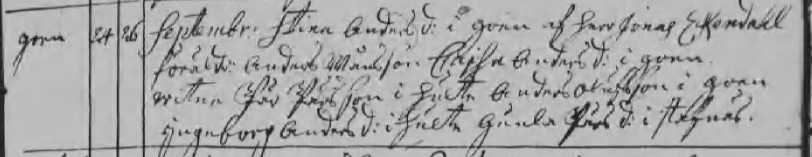 goen 24 26 Septembr: Stina Anders d: i goen af Herr Jonas Ekendahl
föräld: Anders Månsson Cajsa Anders d: i goen
witne Pär Pärsson i Hulte Anders Olufsson i goen
Ingeborg Anders d: i Hulte Gunla Pärs d: i